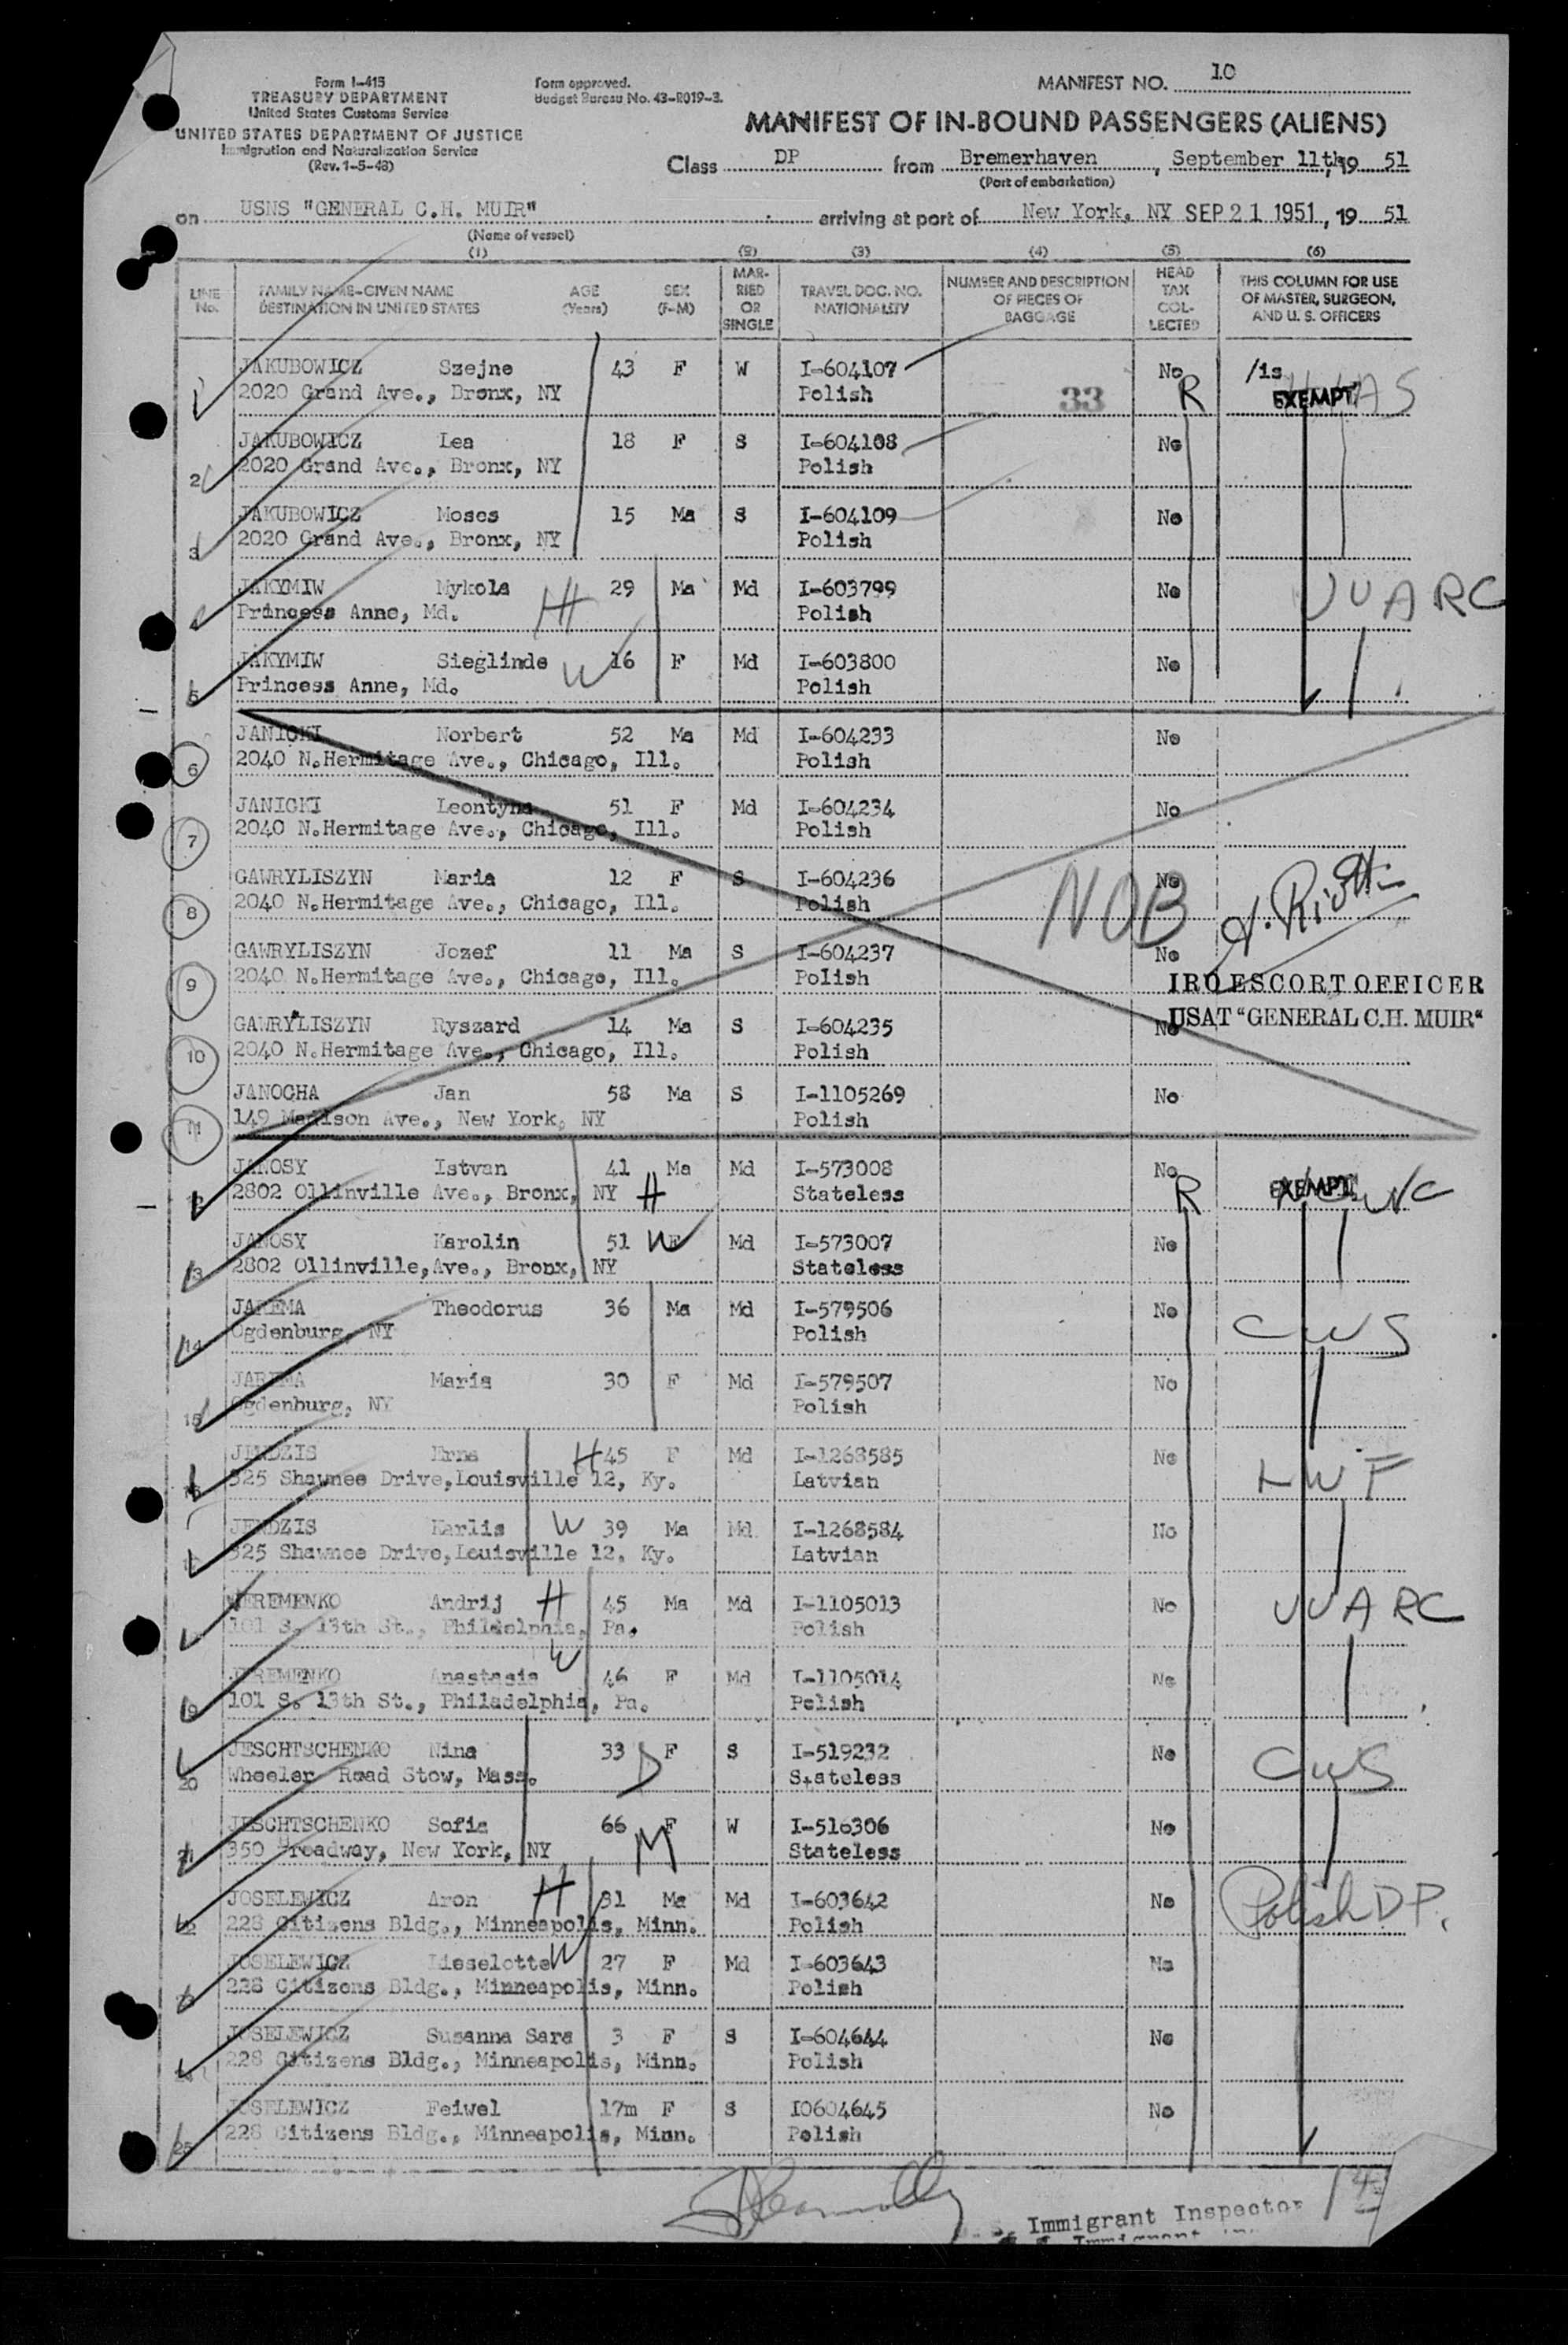 Form I-415
TREASURY DEPARTMENT
United States Customs Service
UNITED STATES DEPARTMENT OF JUSTICE
Immigration and Naturalization Service
(Rev. 1-5-48)
Form approved.
Budget Bureau No. 43-R019-3.
MANIFEST NO. 10
MANIFEST OF IN-BOUND PASSENGERS (ALIENS)
Class DP from Bremerhaven, September 11th, 19 51
(Port of embarkation)
on USNS "GENERAL C.H. MUIR" arriving at port of New York, NY SEP 21 1951, 19 51
(Name of vessel)
(1) (2) (3) (4) (5) (6)
LINE No. FAMILY NAME-GIVEN NAME DESTINATION IN UNITED STATES AGE (Years) SEX (F-M) MARRIED OR SINGLE TRAVEL DOC. NO. NATIONALITY NUMBER AND DESCRIPTION OF PIECES OF BAGGAGE HEAD TAX COLLECTED THIS COLUMN FOR USE OF MASTER, SURGEON, AND U. S. OFFICERS
1 JAKUBOWICZ Szejne 43 F W I-604107 No /1s
2020 Grand Ave., Bronx, NY Polish 33 R EXEMPT
2 JAKUBOWICZ Lea 18 F S I-604108 No
2020 Grand Ave., Bronx, NY Polish
3 JAKUBOWICZ Moses 15 Ma S I-604109 No
2020 Grand Ave., Bronx, NY Polish
JAKYMIW Mykola H 29 Ma Md I-603799 No UUARC
Princess Anne, Md. Polish
5 JAKYMIW Sieglinde W 16 F Md I-603800 No
Princess Anne, Md. Polish
6 JANICKI Norbert 52 Ma Md I-604233 No
2040 N.Hermitage Ave., Chicago, Ill. Polish
7 JANICKI Leontyna 51 F Md I-604234 No
2040 N.Hermitage Ave., Chicago, Ill. Polish
8 GAWRYLISZYN Maria 12 F S I-604236 No
2040 N.Hermitage Ave., Chicago, Ill. Polish NOB
9 GAWRYLISZYN Jozef 11 Ma S I-604237 No
2040 N.Hermitage Ave., Chicago, Ill. Polish IRO ESCORT OFFICER
10 GAWRYLISZYN Ryszard 14 Ma S I-604235 No USAT "GENERAL C.H. MUIR"
2040 N.Hermitage Ave., Chicago, Ill. Polish
11 JANOCHA Jan 58 Ma S I-1105269 No
149 Madison Ave., New York, NY Polish
12 JANOSY Istvan 41 Ma Md I-573008 No
2802 Ollinville Ave., Bronx, NY H Stateless R EXEMPT
13 JANOSY Karolin 51 W F Md I-573007 No
2802 Ollinville,Ave., Bronx, NY Stateless
14 JAREMA Theodorus 36 Ma Md I-579506 No
Ogdenburg, NY Polish CWS
15 JAREMA Maria 30 F Md I-579507 No
Ogdenburg, NY Polish
JENDZIS Erna H 45 F Md I-1268585 No
325 Shawnee Drive,Louisville 12, Ky. Latvian LWF
JENDZIS Karlis W 39 Ma Md I-1268584 No
325 Shawnee Drive,Louisville 12, Ky. Latvian
JEREMENKO Andrij H 45 Ma Md I-1105013 No UUARC
101 S. 13th St., Philadelphia, Pa. Polish
19 JEREMENKO Anastasia W 46 F Md I-1105014 No
101 S. 13th St., Philadelphia, Pa. Polish
20 JESCHTSCHENKO Nina 33 D F S I-519232 No CWS
Wheeler Road Stow, Mass. Stateless
21 JESCHTSCHENKO Sofia 66 F W I-516306 No
350 Broadway, New York, NY M Stateless
22 JOSELEWICZ Aron H 31 Ma Md I-603642 No Polish DP.
228 Citizens Bldg., Minneapolis, Minn. Polish
JOSELEWICZ Lieselotte W 27 F Md I-603643 No
228 Citizens Bldg., Minneapolis, Minn. Polish
24 JOSELEWICZ Susanna Sara 3 F S I-604644 No
228 Citizens Bldg., Minneapolis, Minn. Polish
25 JOSELEWICZ Feiwel 17m F S I0604645 No
228 Citizens Bldg., Minneapolis, Minn. Polish
Immigrant Inspector